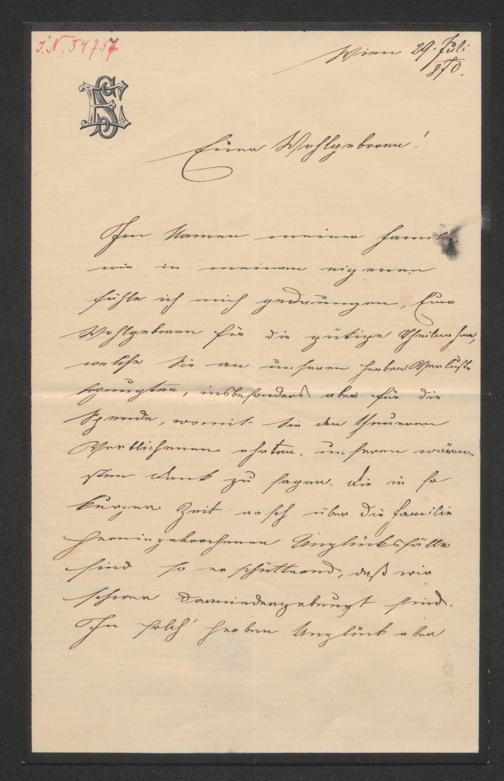 I.N. 54757
Wien 29. Juli
870.
ES
Euer Wohlgeboren!
Im Namen meiner Familie
wie in meinem eigenen
fühle ich mich gedrungen, Euer
Wohlgeboren für die gütige Theilnahme,
welche Sie an unserem herben Verluste
bezeugten, insbesonders aber für die
Spende, womit Sie den theueren
Verblichenen ehrten, unseren wärm-
sten Dank zu sagen. Die in so
kurzer Zeit rasch über die Familie
hereingebrochenen Unglücksfälle
sind so erschütternd, daß wir
schwer darniedergebeugt sind.
In solch' herben Unglück aber